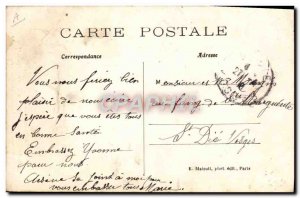 CARTE POSTALE
Correspondance
Adresse
Vous nous feriez bien
plaisir de nous écrire
j'espère que vous êtes tous
en bonne Santé
Embrassez Yvonne
pour nous
Arsène se joint à moi pour
vous embrasser tous Marie
Monsieur et
St Dié Vosges
E. Malcuit, phot. édit., Paris